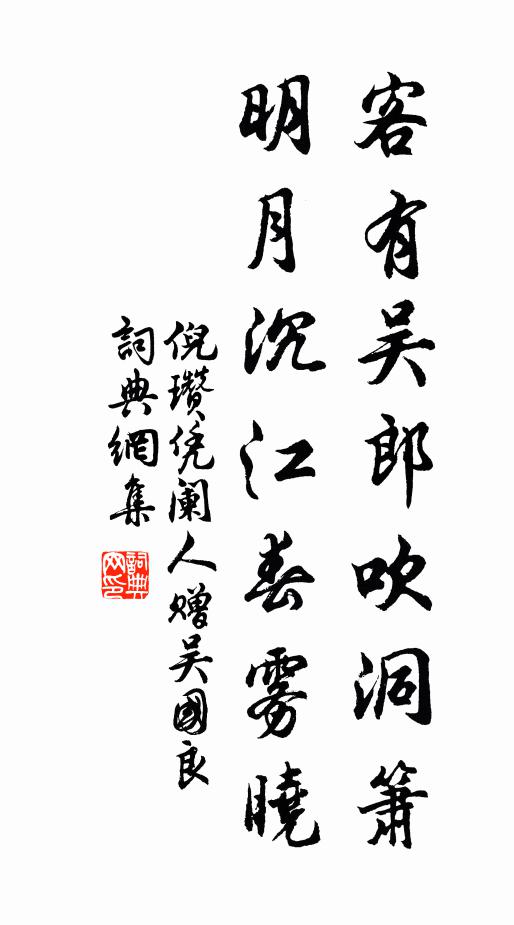 客有吴郎吹洞箫
明月沉江春雾晓
倪瓒凭阑人赠吴國良
詞典網集
詞典网印